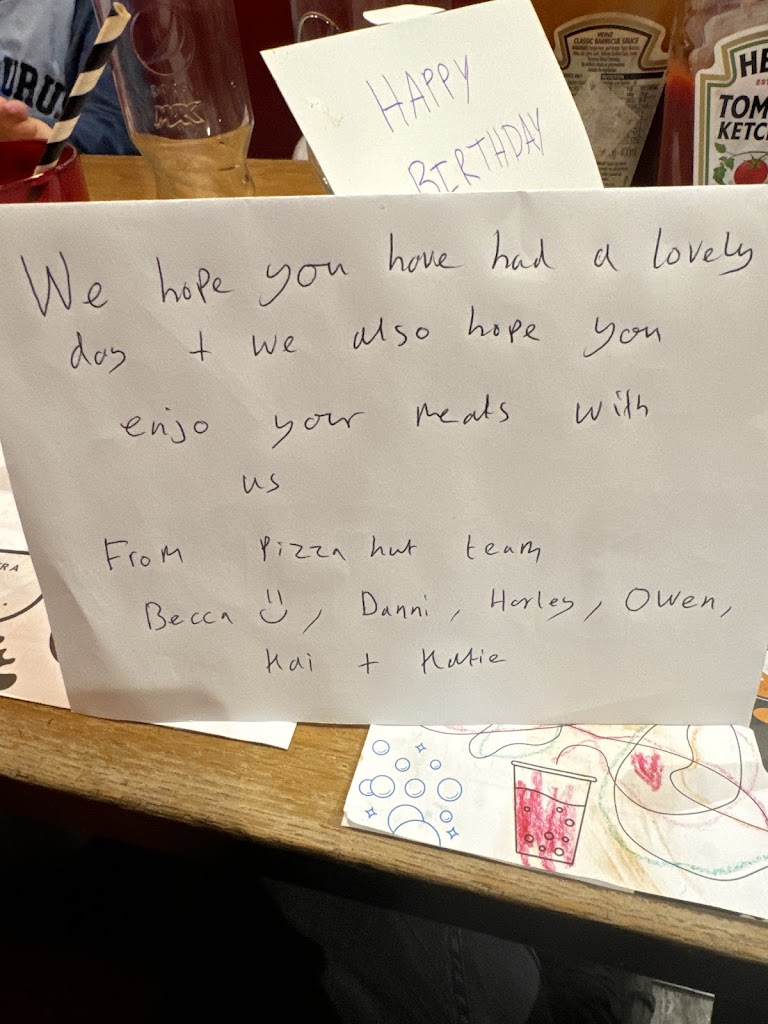 URUS
MAX
HAPPY
BIRTHDAY
HEINZ
CLASSIC BARBECUE SAUCE
HE
TOM
KETC
We hope you have had a lovely
day + we also hope you
enjo your meals with
us
From Pizza hut team
Becca, Danni, Harley, Owen,
Kai + Katie